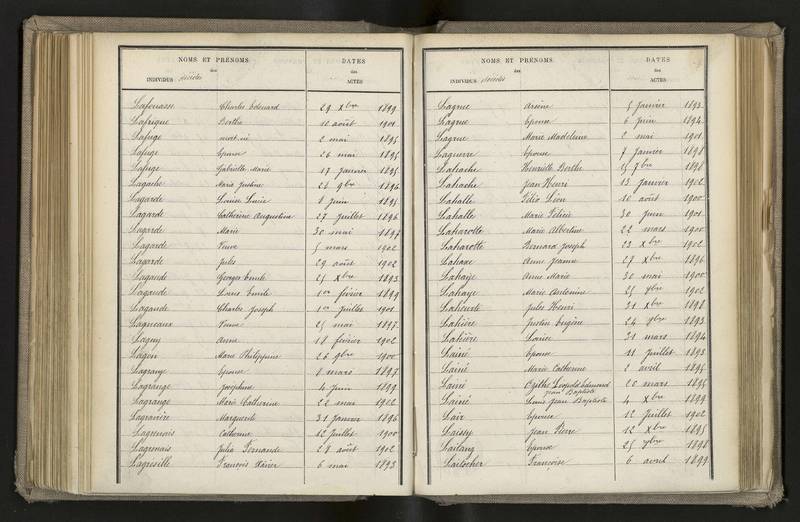 NOMS ET PRÉNOMS
des
INDIVIDUS décédés
DATES
des
ACTES
Lafouasse Charles Edouard 29 Xbre 1899
Lafrique Berthe 12 août 1901
Lafuge mort-né 2 mai 1895
Lafuge Epouse 26 mai 1895
Lafuge Gabrielle Marie 17 Janvier 1895
Lagache Marie Justine 28 9bre 1896
Lagarde Louise Lucie 8 Juin 1895
Lagarde Catherine Augustine 27 Juillet 1896
Lagarde Marie 30 mai 1897
Lagarde Veuve 5 mars 1902
Lagarde Jules 29 août 1902
Lagaude Georges Emile 25 Xbre 1893
Lagaude Louis Emile 1er février 1899
Lagaude Charles Joseph 1er Juillet 1901
Lagneaux Veuve 25 mai 1897
Lagny Anne 18 février 1902
Lagon Marie Philippine 26 9bre 1900
Lagrange Epouse 8 mars 1897
Lagrange Joséphine 4 Juin 1899
Lagrange Marie Catherine 22 mai 1902
Lagravière Marguerite 31 Janvier 1896
Lagrenois Catherine 12 Juillet 1900
Lagrenois Julia Fernande 28 août 1902
Lagresille François Xavier 6 mai 1893
NOMS ET PRÉNOMS
des
INDIVIDUS décédés
DATES
des
ACTES
Lagrue Arsène 5 Janvier 1893
Lagrue Epouse 6 Juin 1894
Lagrue Marie Madeleine 2 mai 1901
Laguerre Epouse 7 Janvier 1898
Lahache Henriette Berthe 15 7bre 1898
Lahache Jean Henri 13 Janvier 1902
Lahalle Félix Léon 10 août 1900
Lahalle Marie Félicie 30 Juin 1901
Laharotte Marie Albertine 22 mars 1900
Laharotte Bernard Joseph 23 Xbre 1902
Lahaxe Anne Jeanne 27 Xbre 1896
Lahaye Anne Marie 30 mai 1900
Lahaye Marie Antonine 25 9bre 1902
Laheurte Jules Henri 31 Xbre 1898
Lahière Justin Eugène 24 9bre 1893
Lahière Louise 31 mars 1894
Lainé Epouse 11 Juillet 1893
Lainé Marie Catherine 2 avril 1895
Lainé Leopold Edmond 20 mars 1895
Jean Baptiste
Lainé Louis Jean Baptiste 4 Xbre 1899
Lair Epouse 12 Juillet 1902
Laissy Jean Pierre 12 Xbre 1895
Epouse 25 1898
Françoise 6 avril 1899